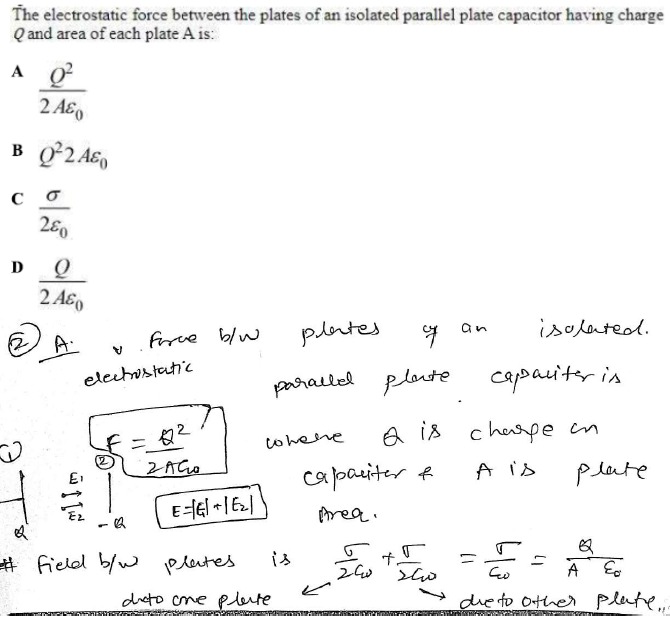 The electrostatic force between the plates of an isolated parallel plate capacitor having charge
Q and area of each plate A is:
A Q²/2Aε₀
B Q²2Aε₀
C σ/2ε₀
D Q/2Aε₀
② A. electrostatic force b/w plates of an isolated.
parallel plate capacitor is
F = Q²/2Aε₀ where Q is charge on
capacitor & A is plate
Area.
① Q E1 E2 ② -Q
E=|E1|+|E2|
# field b/w plates is σ/2ε₀ + σ/2ε₀ = σ/ε₀ = Q/A ε₀
due to one plate due to other plate